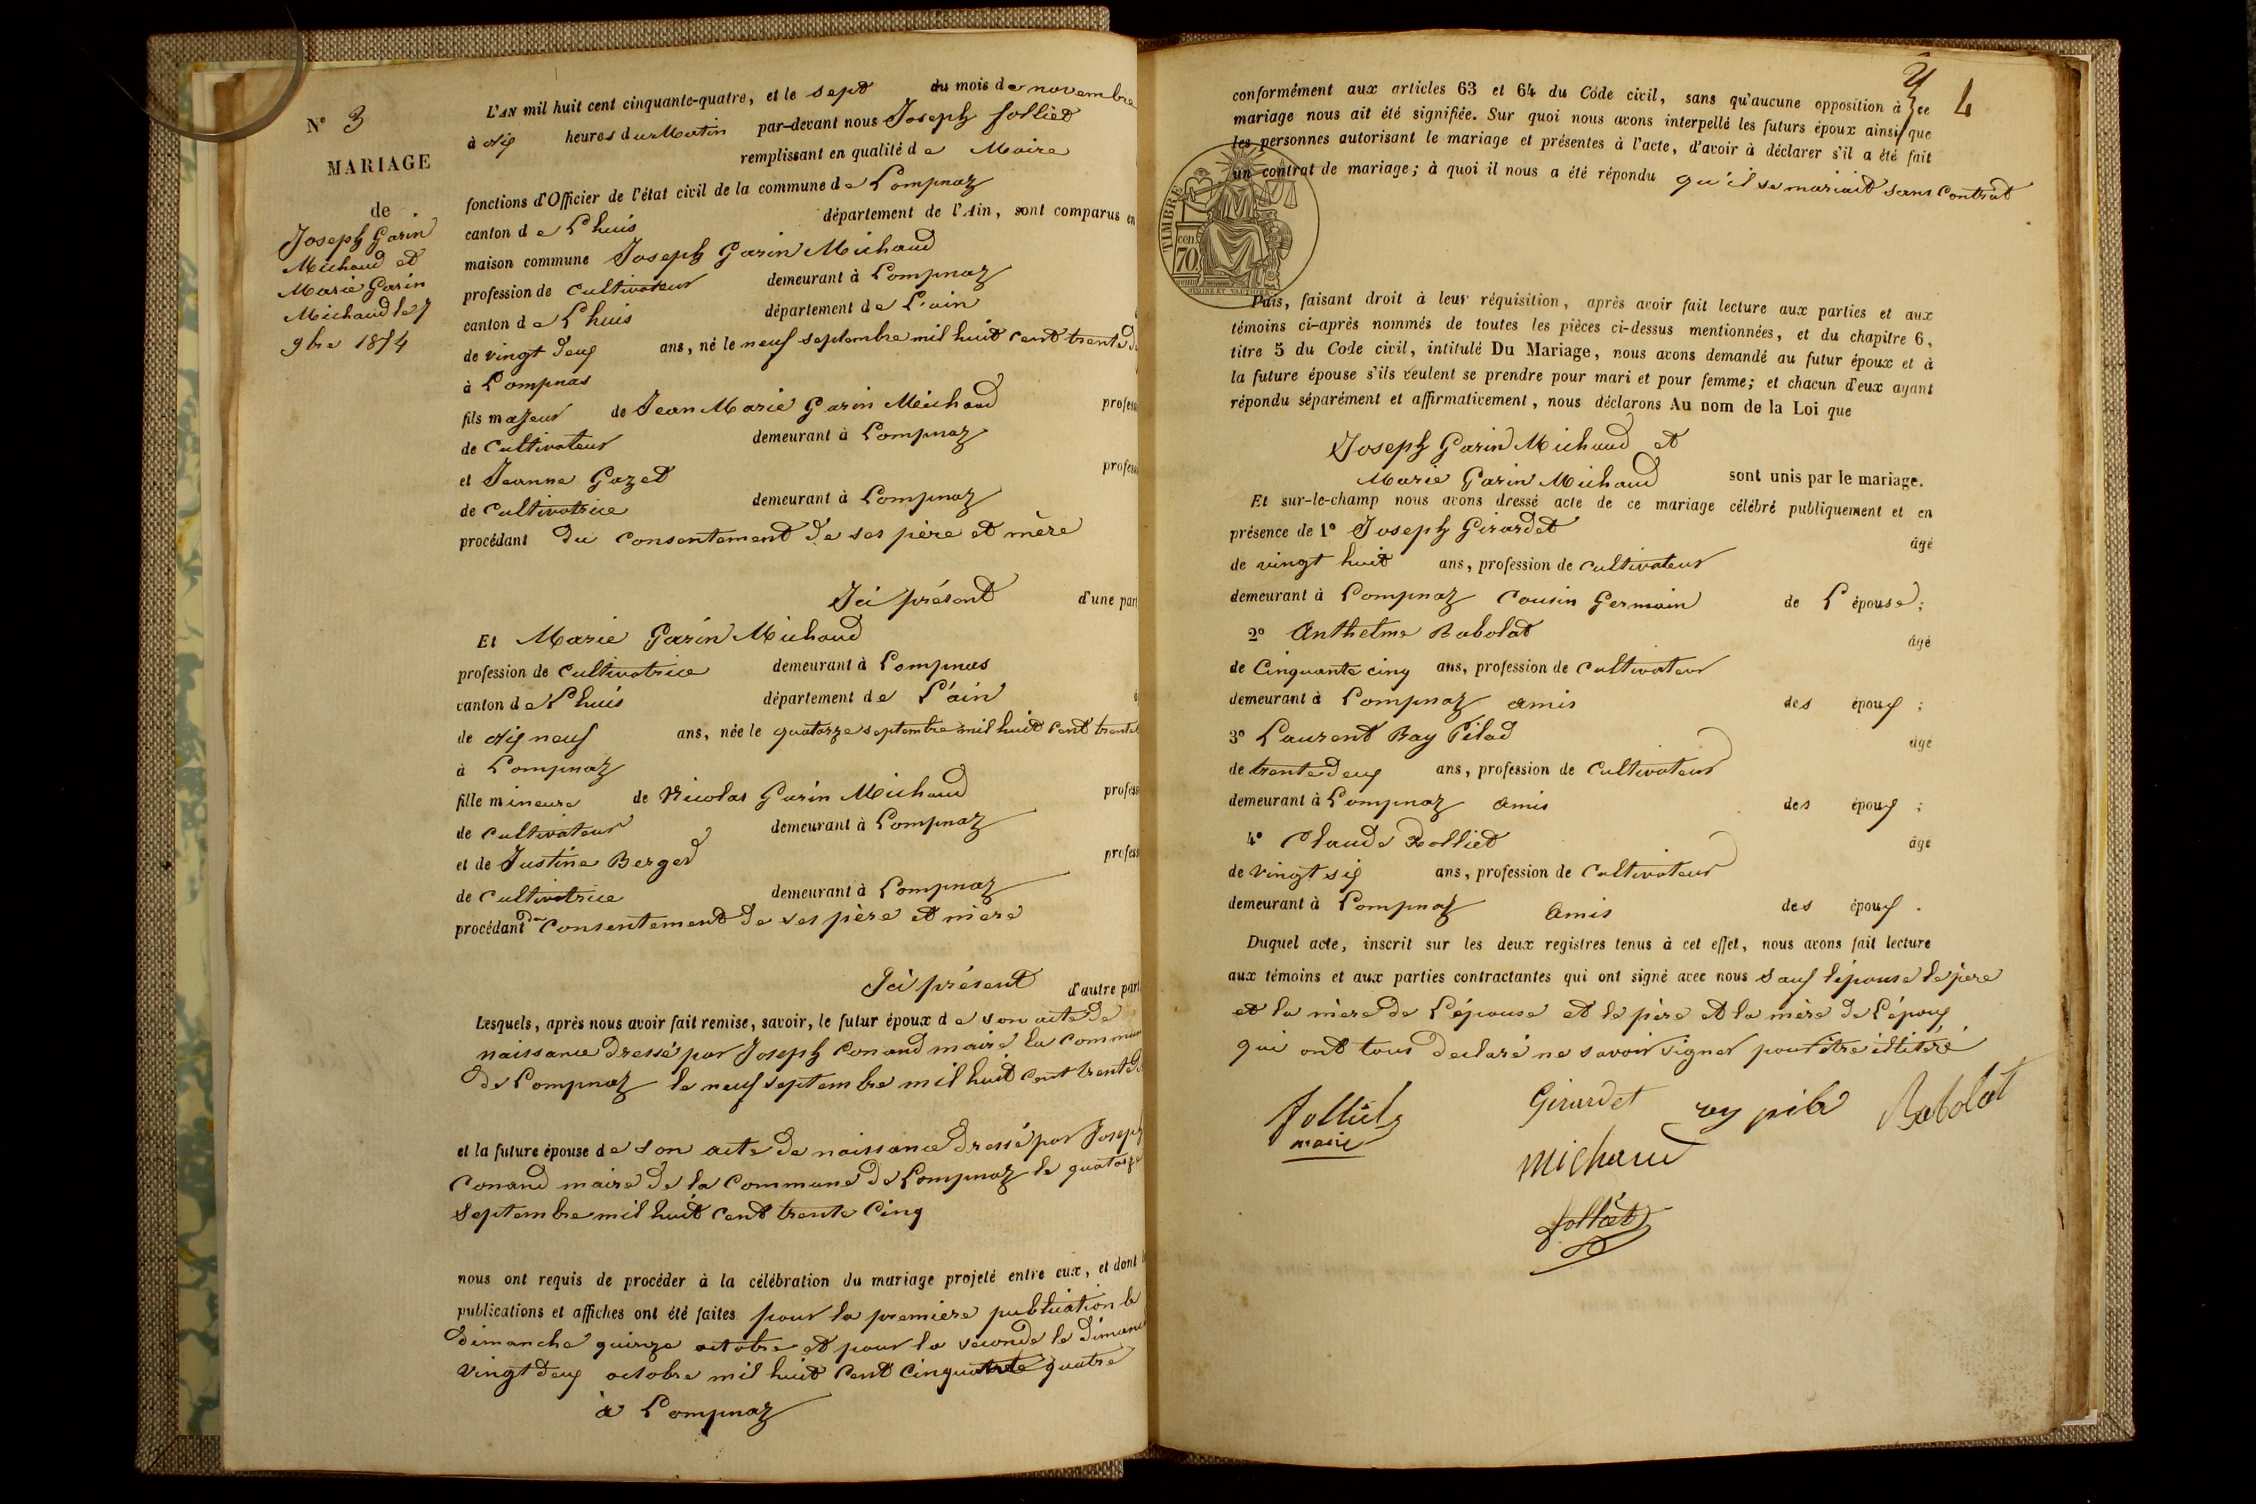 N° 3
MARIAGE
de
Joseph Garin
Michaud et
Marie Garin
Michaud le 7
9bre 1854
L'AN mil huit cent cinquante-quatre, et le sept du mois de novembre
à dix heures du Matin par-devant nous Joseph folliet
remplissant en qualité de Maire
fonctions d'Officier de l'état civil de la commune de Lompnaz
canton de Lhuis département de l'Ain, sont comparus en
maison commune Joseph Garin Michaud
profession de Cultivateur demeurant à Lompnaz
canton de Lhuis département de L'ain
de vingt deux ans, né le neuf septembre mil huit cent trente d
à Lompnas
fils majeur de Jean Marie Garin Michaud profess
de Cultivateur demeurant à Lompnaz
et Jeanne Gazet profess
de Cultivatrice demeurant à Lompnaz
procédant du consentement de ses père et mère
Ici présent d'une part
Et Marie Garin Michaud
profession de Cultivatrice demeurant à Lompnas
canton de Lhuis département de L'ain
de dix neuf ans, née le quatorze septembre mil huit cent trente
à Lompnaz
fille mineure de Nicolas Garin Michaud profess
de Cultivateur demeurant à Lompnaz
et de Justine Berger profess
de Cultivatrice demeurant à Lompnaz
procédant du consentement de ses père et mère
Ici présent d'autre part
Lesquels, après nous avoir fait remise, savoir, le futur époux de son acte de
naissance dressé par Joseph Conand maire la Commune
de Lompnaz le neuf septembre mil huit cent trente d
et la future épouse de son acte de naissance dressé par Joseph
Conand maire de la Commune de Lompnaz le quatorze
septembre mil huit cent trente Cinq
nous ont requis de procéder à la célébration du mariage projeté entre eux, et dont
publications et affiches ont été faites pour la premiere publication le
dimanche quinze octobre et pour la seconde le dimanc
vingt deux octobre mil huit Cent Cinquante quatre
à Lompnaz
4
conformément aux articles 63 et 64 du Code civil, sans qu'aucune opposition à ce
mariage nous ait été signifiée. Sur quoi nous avons interpellé les futurs époux ainsi que
les personnes autorisant le mariage et présentes à l'acte, d'avoir à déclarer s'il a été fait
un contrat de mariage; à quoi il nous a été répondu qu'il se mariait sans Contrat
TIMBRE
cen
70
Puis, faisant droit à leur réquisition, après avoir fait lecture aux parties et aux
témoins ci-après nommés de toutes les pièces ci-dessus mentionnées, et du chapitre 6,
titre 5 du Code civil, intitulé Du Mariage, nous avons demandé au futur époux et à
la future épouse s'ils veulent se prendre pour mari et pour femme; et chacun d'eux ayant
répondu séparément et affirmativement, nous déclarons Au nom de la Loi que
Joseph Garin Michaud et
Marie Garin Michaud sont unis par le mariage.
Et sur-le-champ nous avons dressé acte de ce mariage célébré publiquement et en
présence de 1° Joseph Girardet âgé
de vingt huit ans, profession de cultivateur
demeurant à Lompnaz Cousin Germain de L'épouse;
2° Anthelme Rabolat âgé
de Cinquante cinq ans, profession de Cultivateur
demeurant à Lompnaz amis des époux;
3° Laurent Ray Pilad âgé
de trente deux ans, profession de Cultivateur
demeurant à Lompnaz amis des époux;
4° Claude Folliet âgé
de vingt six ans, profession de Cultivateur
demeurant à Lompnaz Amis des époux.
Duquel acte, inscrit sur les deux registres tenus à cet effet, nous avons fait lecture
aux témoins et aux parties contractantes qui ont signé avec nous sauf l'épouse le père
et la mère de L'épouse et le père et la mère de L'époux
qui ont tous déclaré ne savoir signer pour être illitéré
folliet
maire
Girardet
ray pila
Rabolat
Michaud
folliet